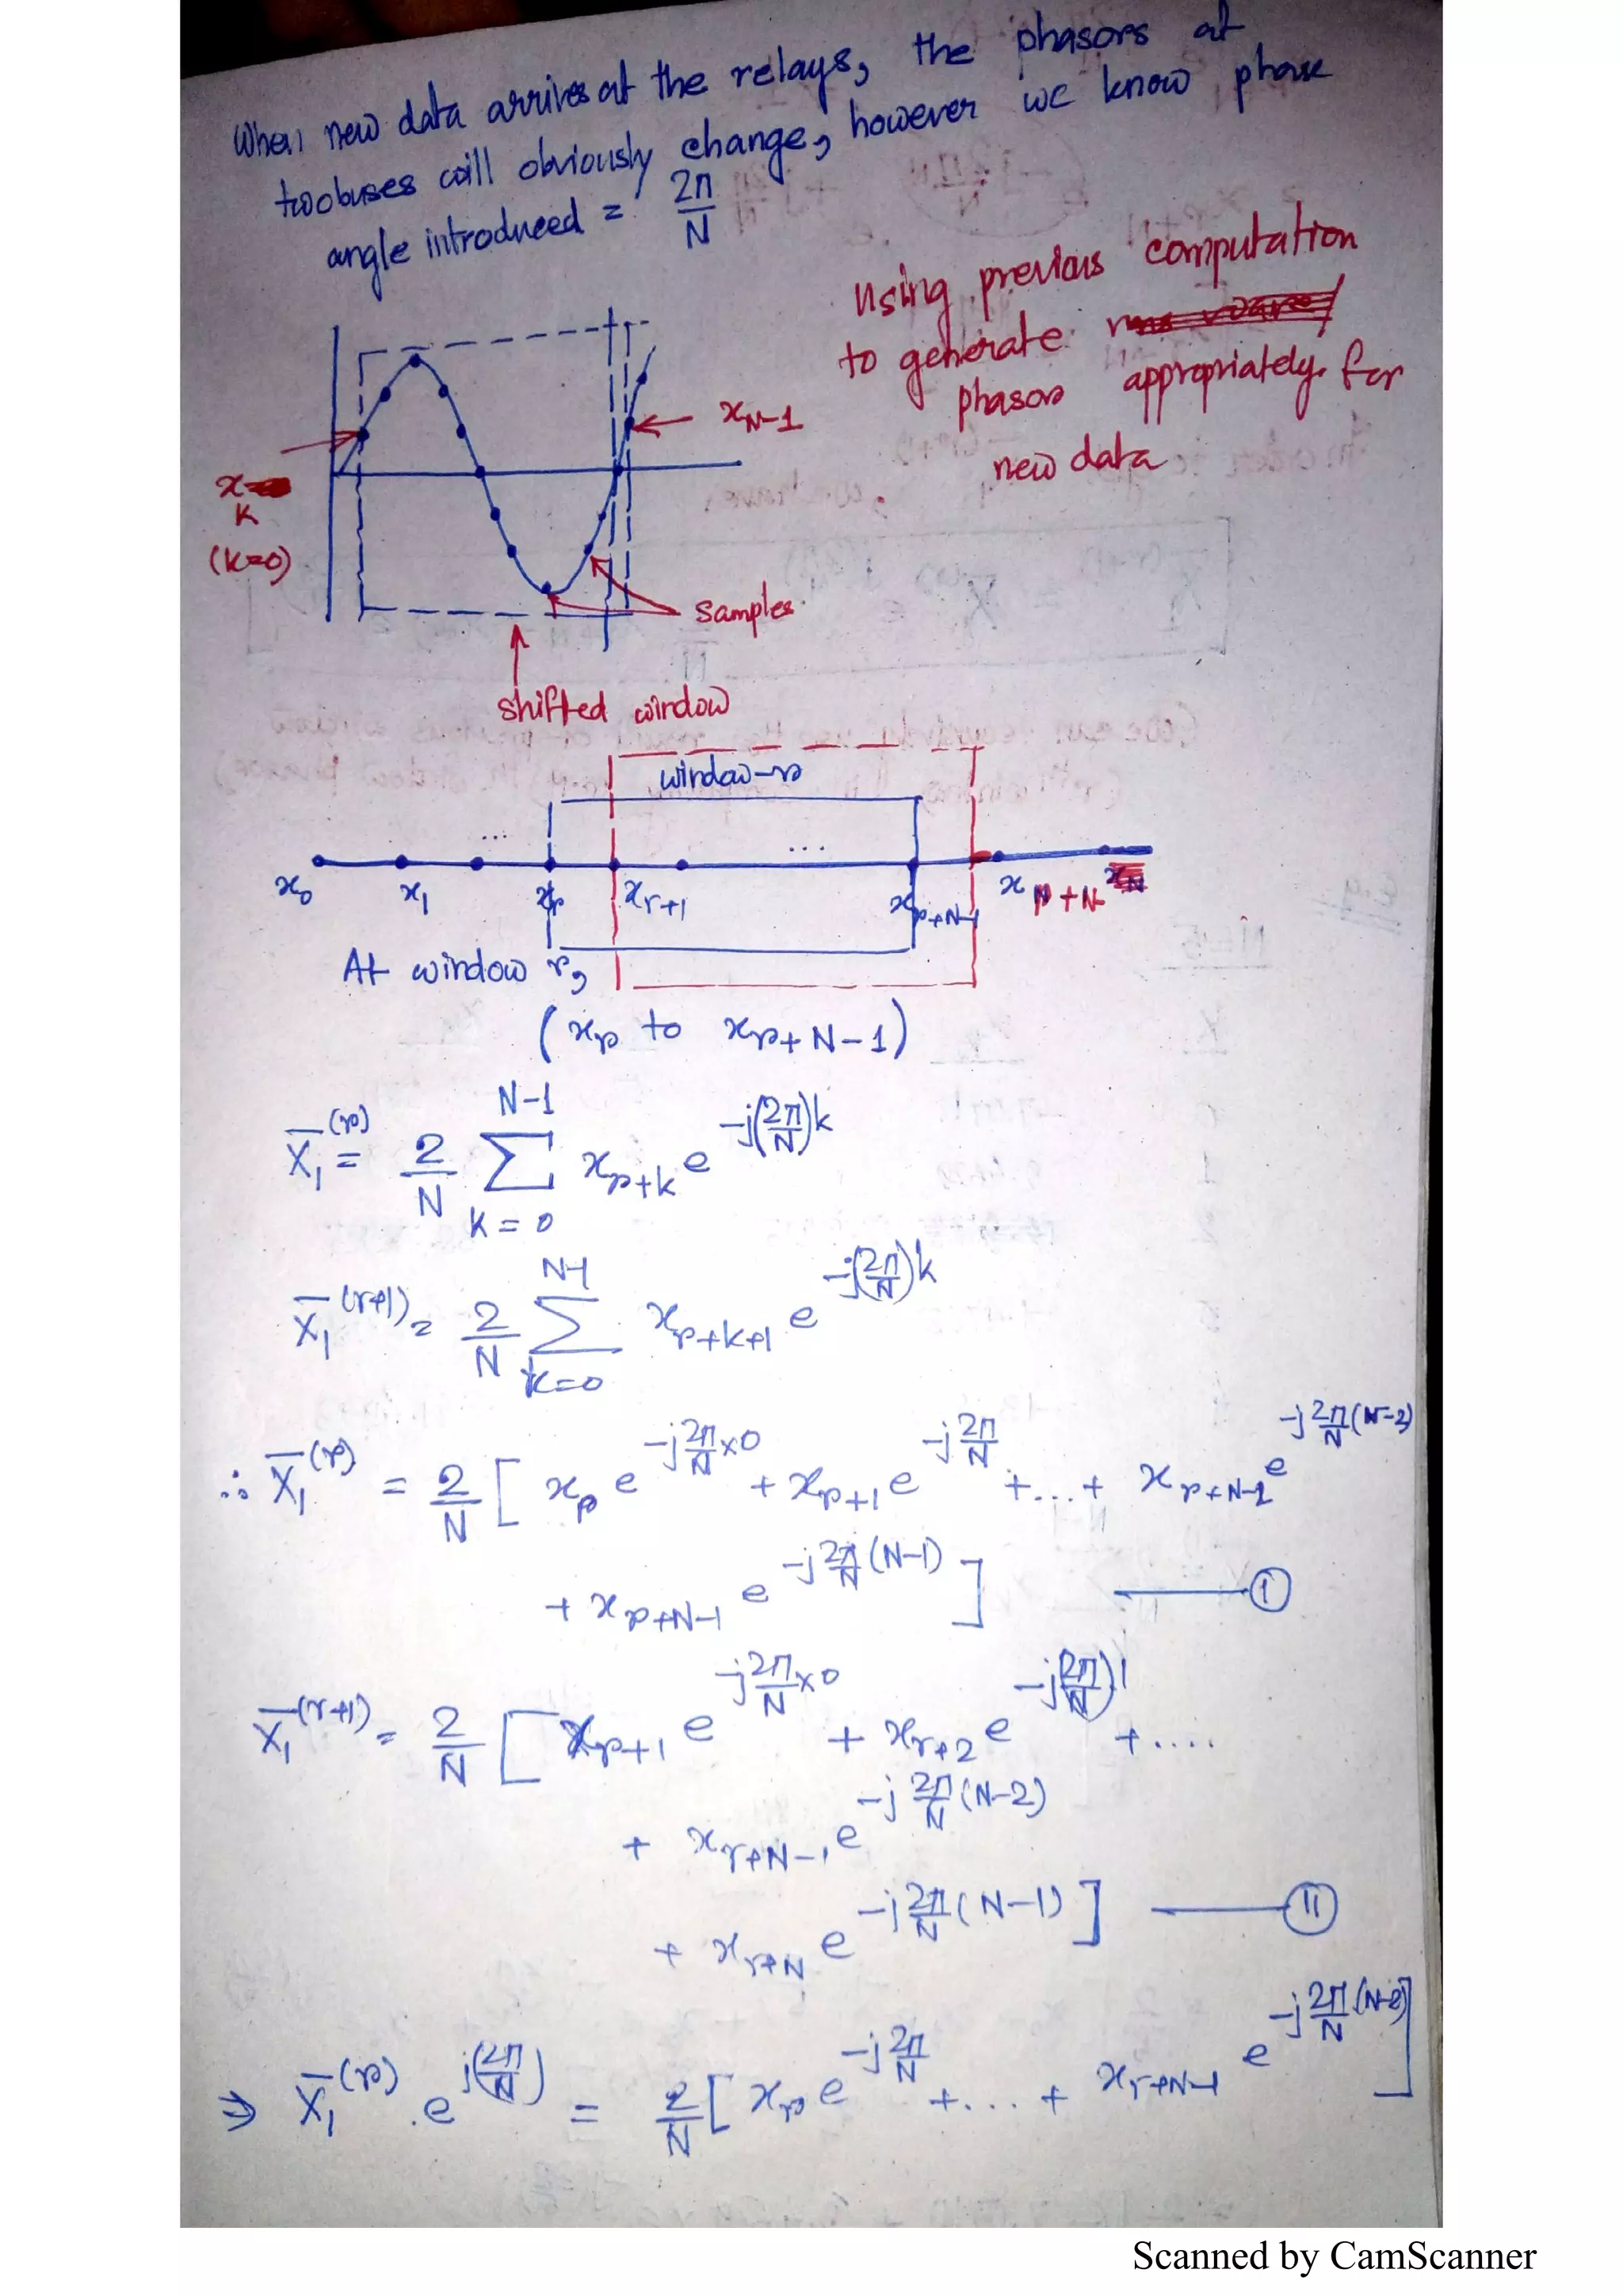 When new data arrives at the relays, the phasors at
two buses will obviously change, however we know phase
angle introduced = 2π/N
Using previous computation
to generate
phasors appropriately for
new data
x_{N-1}
x
k
(k=0)
samples
shifted window
window-r
... ...
x_0 x_1 x_r x_{r+1} x_{r+N-1} x_{r+N}
At window r,
(x_r to x_{r+N-1})
X̄_1^{(r)} = 2/N Σ_{k=0}^{N-1} x_{r+k} e^{-j(2π/N)k}
X̄_1^{(r+1)} = 2/N Σ_{k=0}^{N-1} x_{r+k+1} e^{-j(2π/N)k}
∴ X̄_1^{(r)} = 2/N [ x_r e^{-j2π/N×0} + x_{r+1} e^{-j2π/N} + ... + x_{r+N-2} e^{-j2π/N(N-2)}
+ x_{r+N-1} e^{-j2π/N(N-1)} ] —— (I)
X̄_1^{(r+1)} = 2/N [ x_{r+1} e^{-j2π/N×0} + x_{r+2} e^{-j(2π/N)1} + ....
+ x_{r+N-1} e^{-j2π/N(N-2)}
+ x_{r+N} e^{-j2π/N(N-1)} ] —— (II)
⇒ X̄_1^{(r)} . e^{j(2π/N)} = 2/N [ x_r e^{-j2π/N} + ... + x_{r+N-1} e^{-j2π/N(N-2)} ]
Scanned by CamScanner